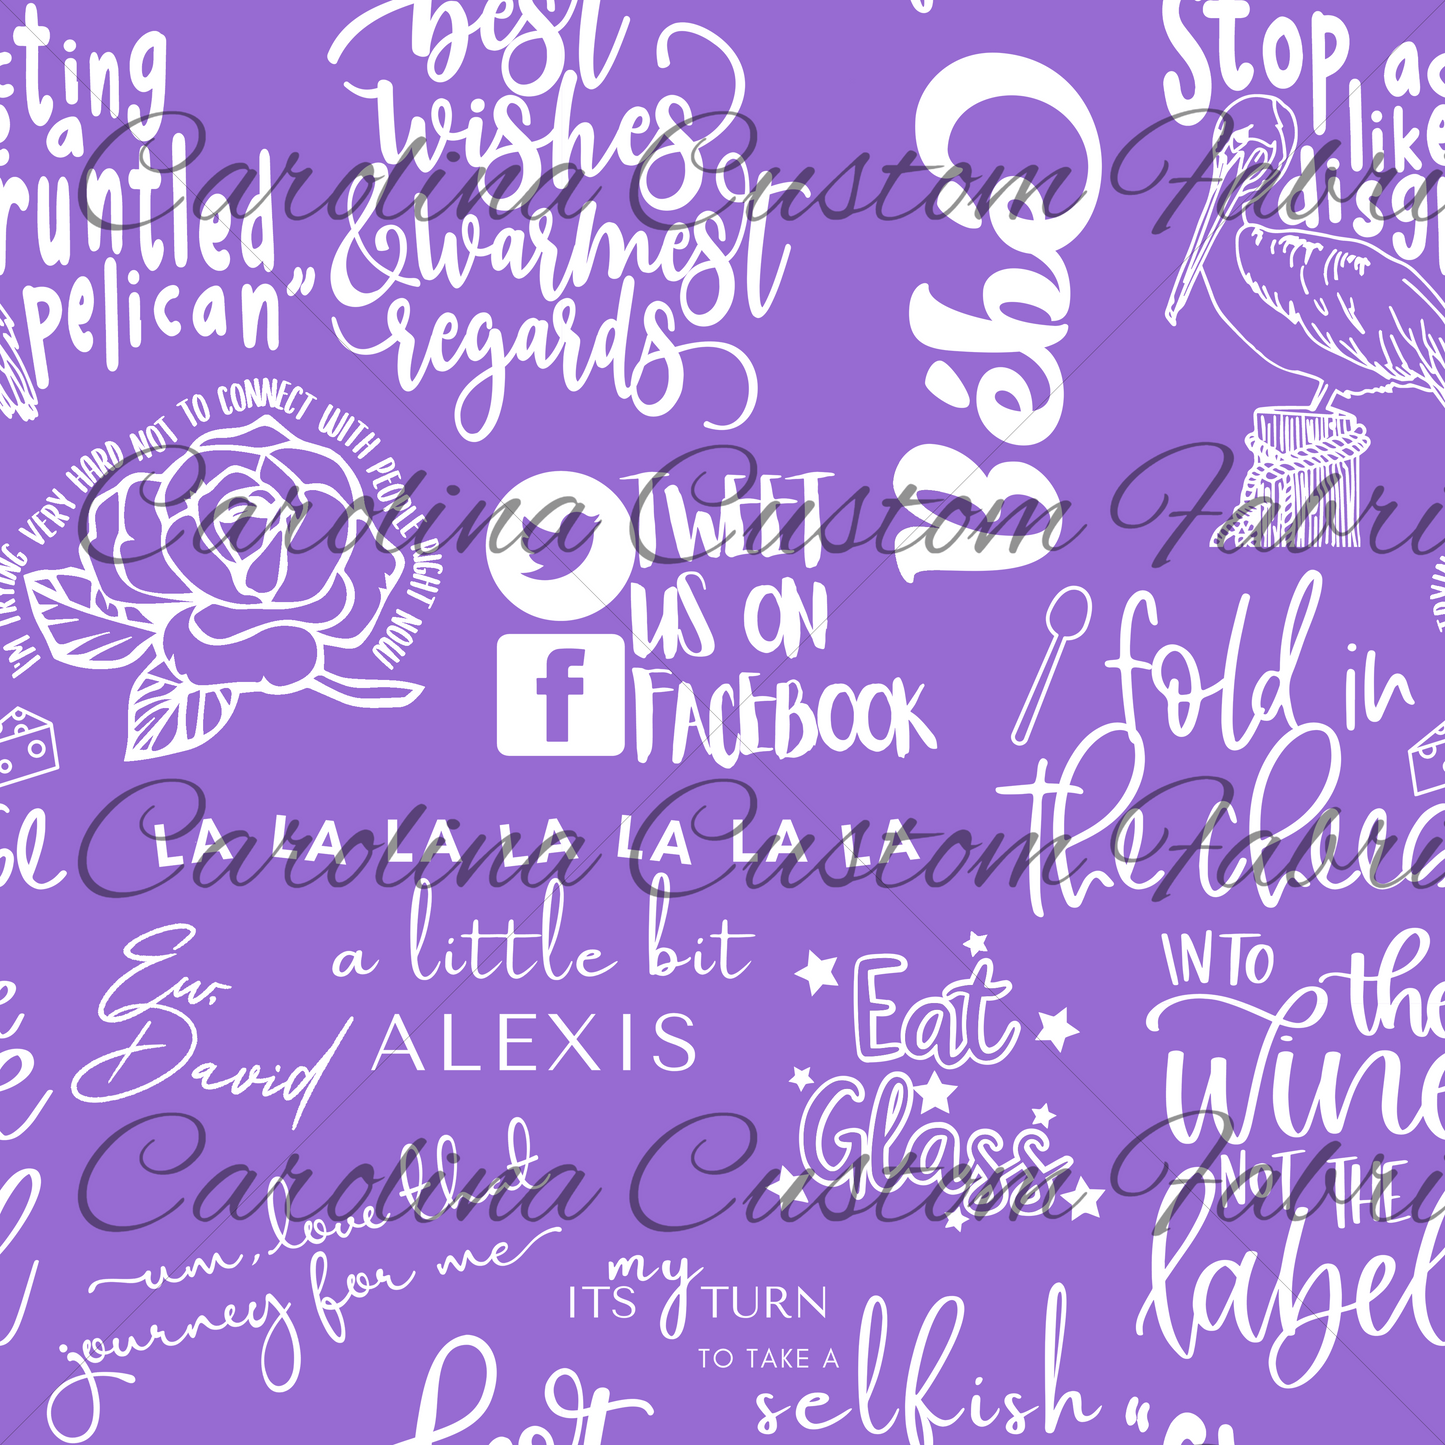 cting
a
runtled
pelican”
best
wishes
& warmest
regards
Bébé
Stop ac
like
disg
I'M TRYING VERY HARD NOT TO CONNECT WITH PEOPLE RIGHT NOW
TWEET
US ON
FACEBOOK
fold in
the chee
LA LA LA LA LA LA LA
a little bit
ALEXIS
Ew,
David
Eat
Glass
INTO the
wine
NOT THE
label
um, love that
journey for me
ITS my TURN
TO TAKE A
selfish
Carolina Custom Fabri
Carolina Custom Fabri
Carolina Custom Fabri
Carolina Custom Fabri